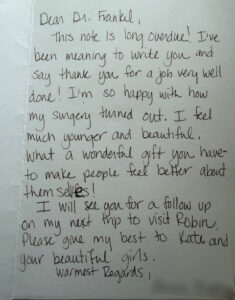 Dear Dr. Frankel,
This note is long overdue! I've
been meaning to write you and
say thank you for a job very well
done! I'm so happy with how
my surgery turned out. I feel
much younger and beautiful.
What a wonderful gift you have-
to make people feel better about
themselves!
I will see you for a follow up
on my next trip to visit Robin.
Please give my best to Kate and
your beautiful girls.
Warmest Regards,